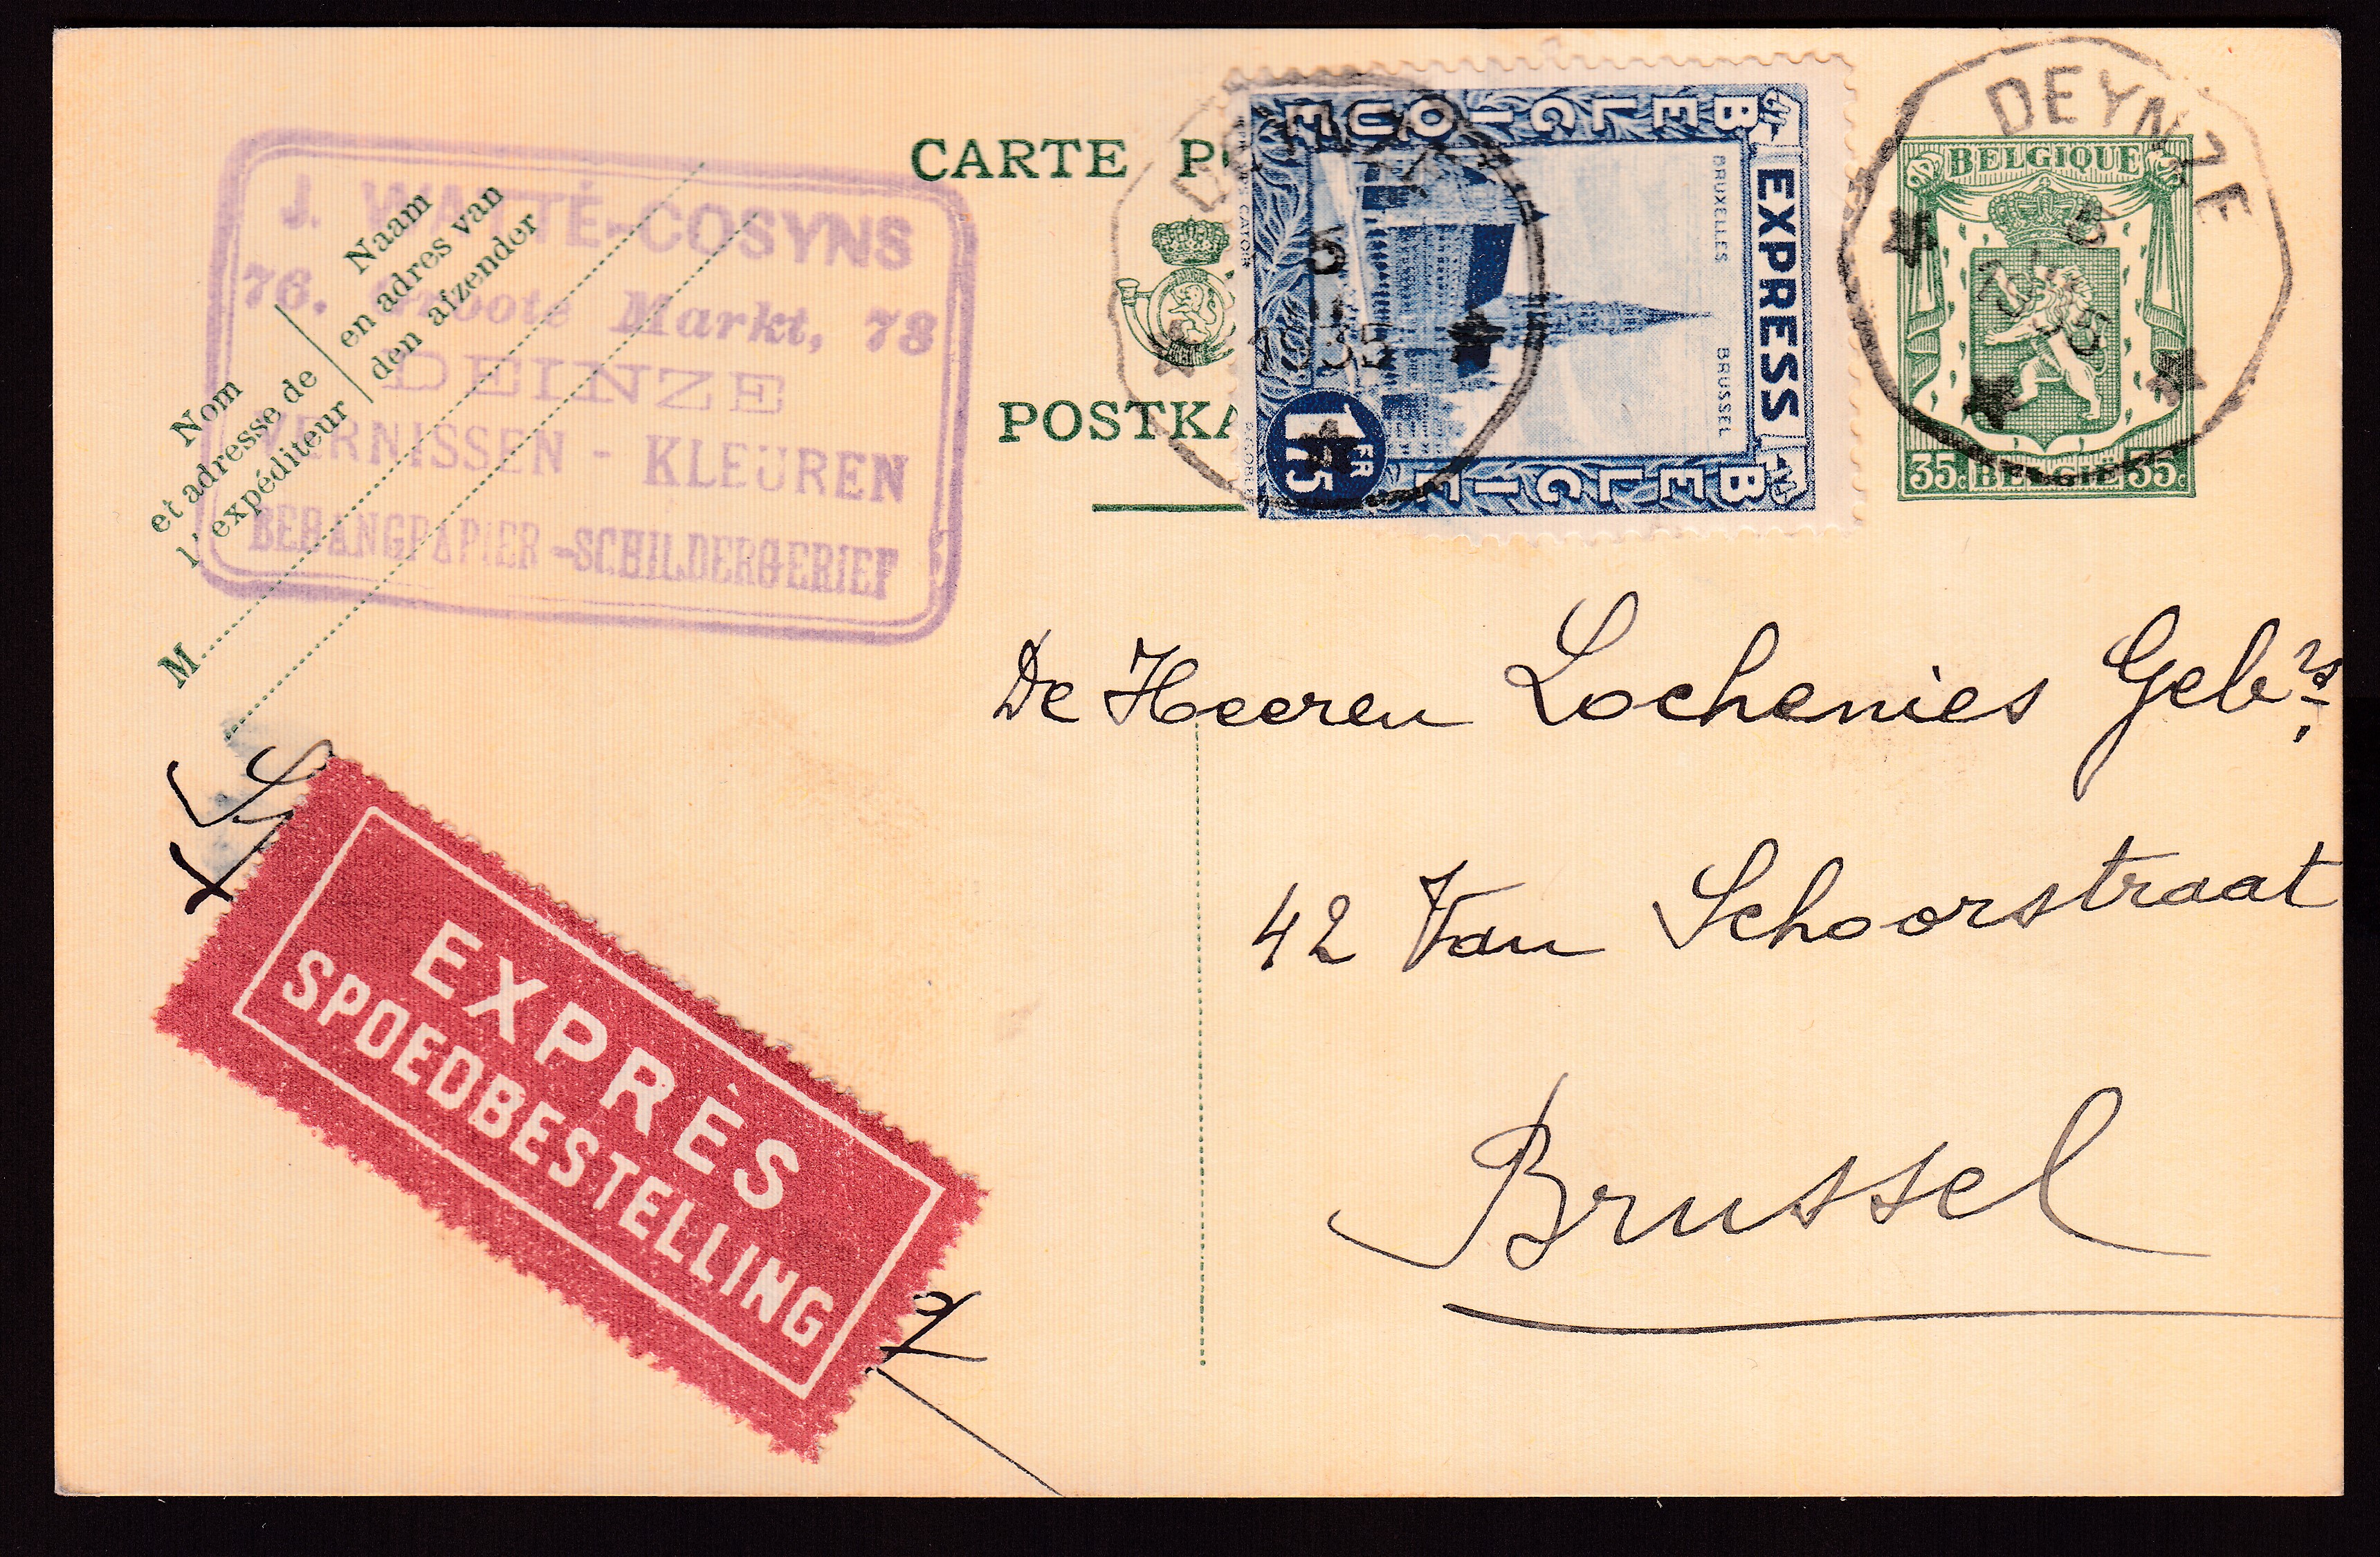 CARTE
POSTKA
J. WATTÉ-COSYNS
76. Groote Markt, 78
DEINZE
VERNISSEN - KLEUREN
BEHANGPAPIER - SCHILDERGERIEF
Naam
en adres van
den afzender
Nom
et adresse de
l'expéditeur
M
BELGIQUE
EXPRESS
BRUXELLES
BRUSSEL
1 FR 75
BELGIE
DEYNZE
1935
DEYNZE
1935
BELGIQUE
35c BELGIË 35c
De Heeren Lochenies Gebrs,
42 Van Schoorstraat
Brussel
EXPRÈS
SPOEDBESTELLING